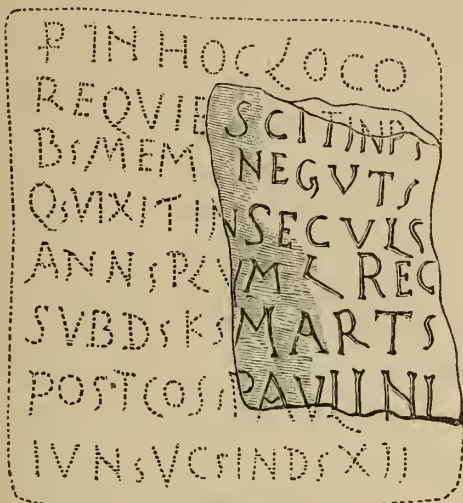 P IN HOC LOCO
REQVIESCIT IN PS
BS MEM NEGVTS
QS VIXIT IN SECVLS
ANNS PLVM L REC
SVB DS KS MARTS
POST COSS PAVLINI
IVNS VCS INDS XII